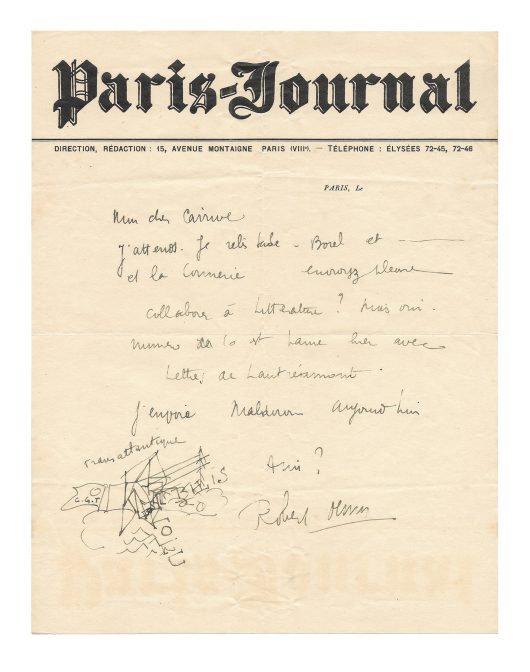 Paris-Journal
DIRECTION, RÉDACTION : 15, AVENUE MONTAIGNE PARIS (VIIIᵉ). — TÉLÉPHONE : ÉLYSÉES 72-45, 72-46
PARIS, Le
Mon cher Carrive
J'attends. Je relis Rabbe - Borel et
et la Connerie envoyez
collaborer à Littérature ? Mais oui.
numéro de 10 est paru hier avec
Lettres de Lautréamont.
J'envoie Maldoror Aujourd'hui
transatlantique
Ami ?
C.G.T
Robert Desnos